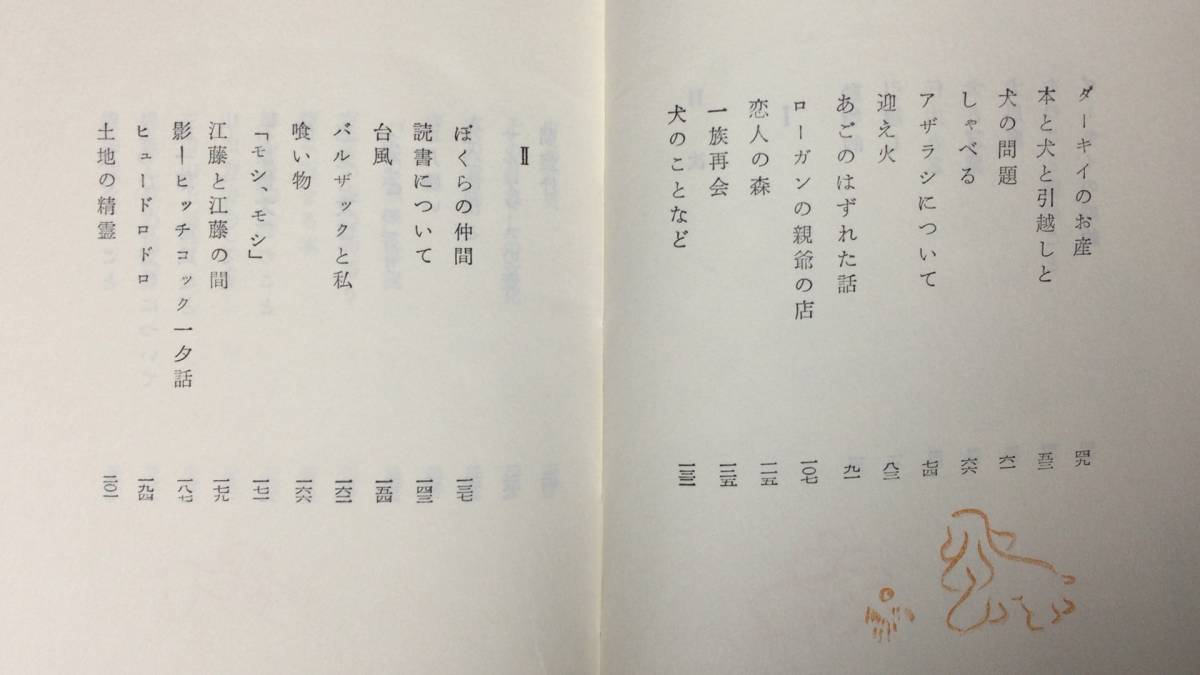 ダーキイのお産 四九
本と犬と引越しと 五三
犬の問題 六一
しゃべる 六六
アザラシについて 七四
迎え火 八三
あごのはずれた話 九一
ローガンの親爺の店 一〇七
恋人の森 一一五
一族再会 一二五
犬のことなど 一三二
Ⅱ
ぼくらの仲間 一三七
読書について 一四三
台風 一五四
バルザックと私 一六二
喰い物 一六六
「モシ、モシ」 一七二
江藤と江藤の間 一七九
影―ヒッチコック一夕話 一八七
ヒュードロドロ 一九四
土地の精霊 二〇一